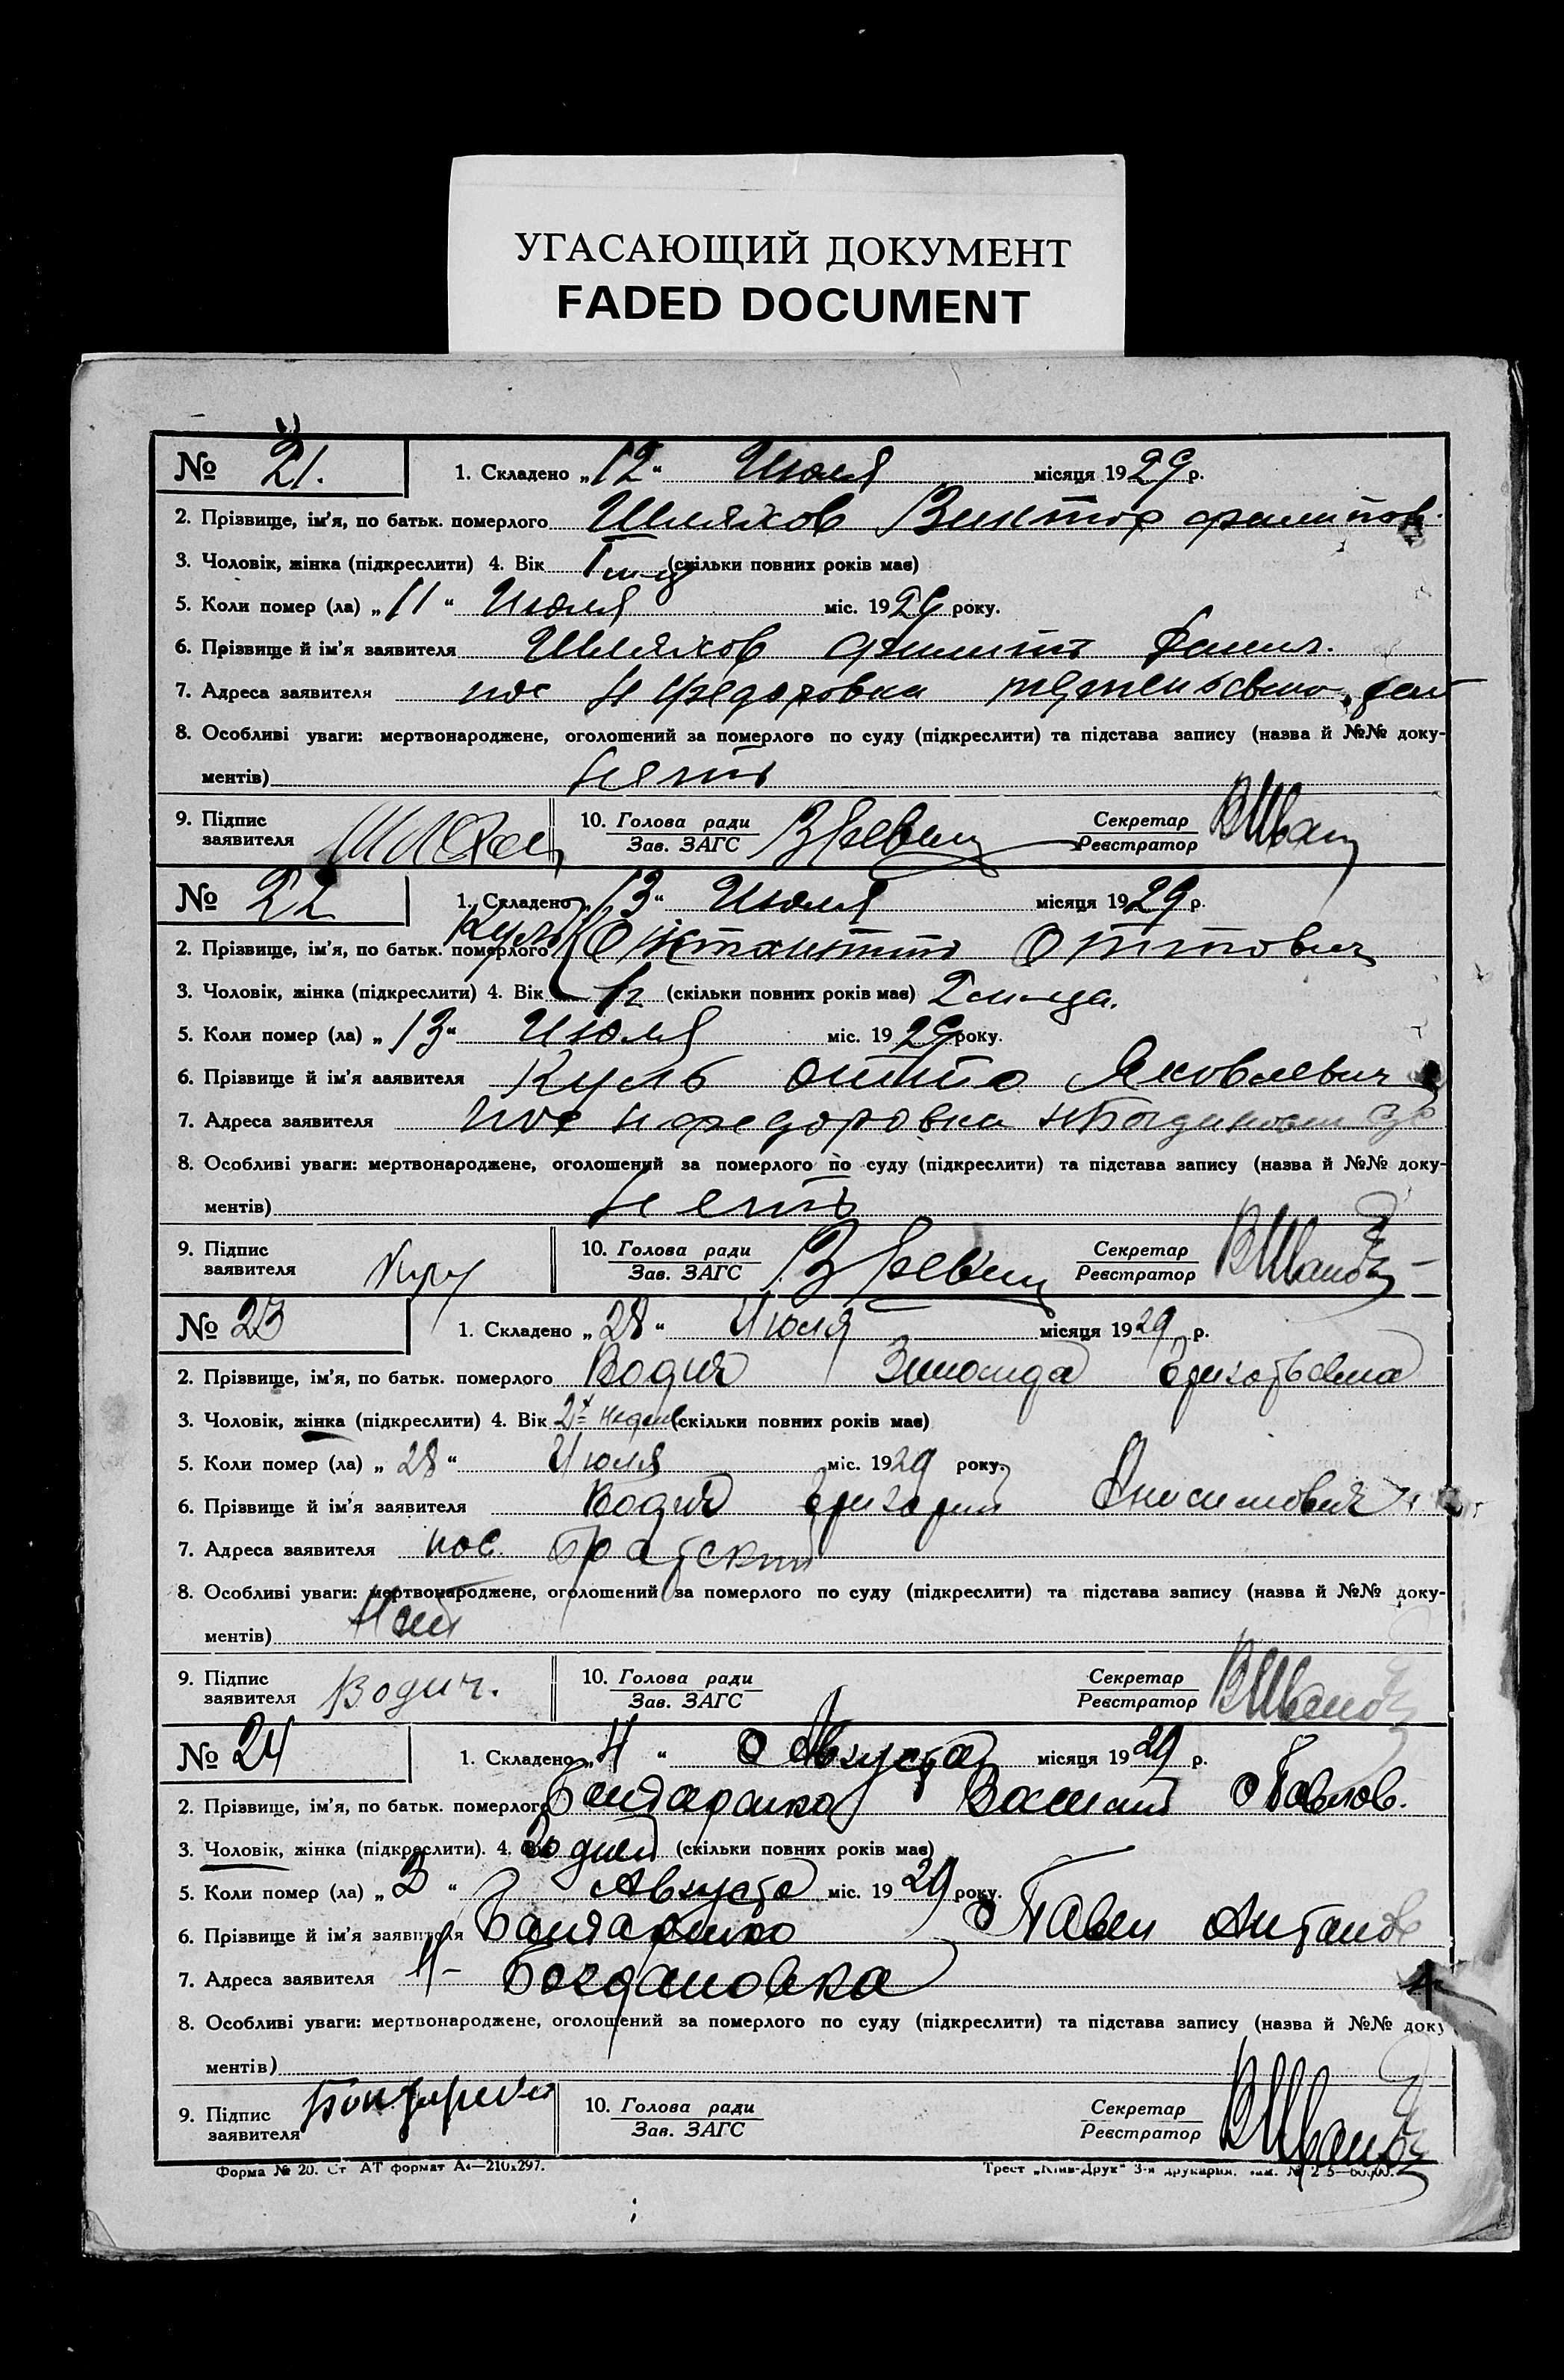 УГАСАЮЩИЙ ДОКУМЕНТ
FADED DOCUMENT
№ 21. 1. Складено „12“ Июля місяця 1929 р.
2. Прізвище, ім'я, по батьк. померлого Шляхов Виктор
3. Чоловік, жінка (підкреслити) 4. Вік (скільки повних років має)
5. Коли помер (ла) „11“ Июля міс. 1929 року.
6. Прізвище й ім'я заявителя Шляхов
7. Адреса заявителя пос Н Федоровка
8. Особливі уваги: мертвонароджене, оголошений за померлого по суду (підкреслити) та підстава запису (назва й №№ доку-
ментів) Нетъ
9. Підпис заявителя 10. Голова ради Зав. ЗАГС Секретар Реєстратор
№ 22 1. Складено „13“ Июля місяця 1929 р.
2. Прізвище, ім'я, по батьк. померлого Куль Оттович
3. Чоловік, жінка (підкреслити) 4. Вік (скільки повних років має) 2 м-ца.
5. Коли помер (ла) „13“ Июля міс. 1929 року.
6. Прізвище й ім'я заявителя Куль Отто Яковлевич
7. Адреса заявителя пос Н Федоровка
8. Особливі уваги: мертвонароджене, оголошений за померлого по суду (підкреслити) та підстава запису (назва й №№ доку-
ментів) Нетъ
9. Підпис заявителя 10. Голова ради Зав. ЗАГС Секретар Реєстратор
№ 23 1. Складено „28“ Июля місяця 1929 р.
2. Прізвище, ім'я, по батьк. померлого Водич Зинаида Григорьевна
3. Чоловік, жінка (підкреслити) 4. Вік 2х недел (скільки повних років має)
5. Коли помер (ла) „28“ Июля міс. 1929 року.
6. Прізвище й ім'я заявителя Водич Григорий Анисимович
7. Адреса заявителя пос. Братский
8. Особливі уваги: мертвонароджене, оголошений за померлого по суду (підкреслити) та підстава запису (назва й №№ доку-
ментів) Нет
9. Підпис заявителя Водич. 10. Голова ради Зав. ЗАГС Секретар Реєстратор
№ 24 1. Складено „4“ Августа місяця 1929 р.
2. Прізвище, ім'я, по батьк. померлого Бондаренко Василий Павлов.
3. Чоловік, жінка (підкреслити). 4. дней (скільки повних років має)
5. Коли помер (ла) „3“ Августа міс. 1929 року.
6. Прізвище й ім'я заявителя Бондаренко Павел Антонов
7. Адреса заявителя Н- Богдановка
8. Особливі уваги: мертвонароджене, оголошений за померлого по суду (підкреслити) та підстава запису (назва й №№ доку
ментів)
9. Підпис заявителя Бондаренко 10. Голова ради Зав. ЗАГС Секретар Реєстратор
Форма № 20. Ст АТ формат А4—210x297. Трест „Київ-Друк“ 3-я друкарня.